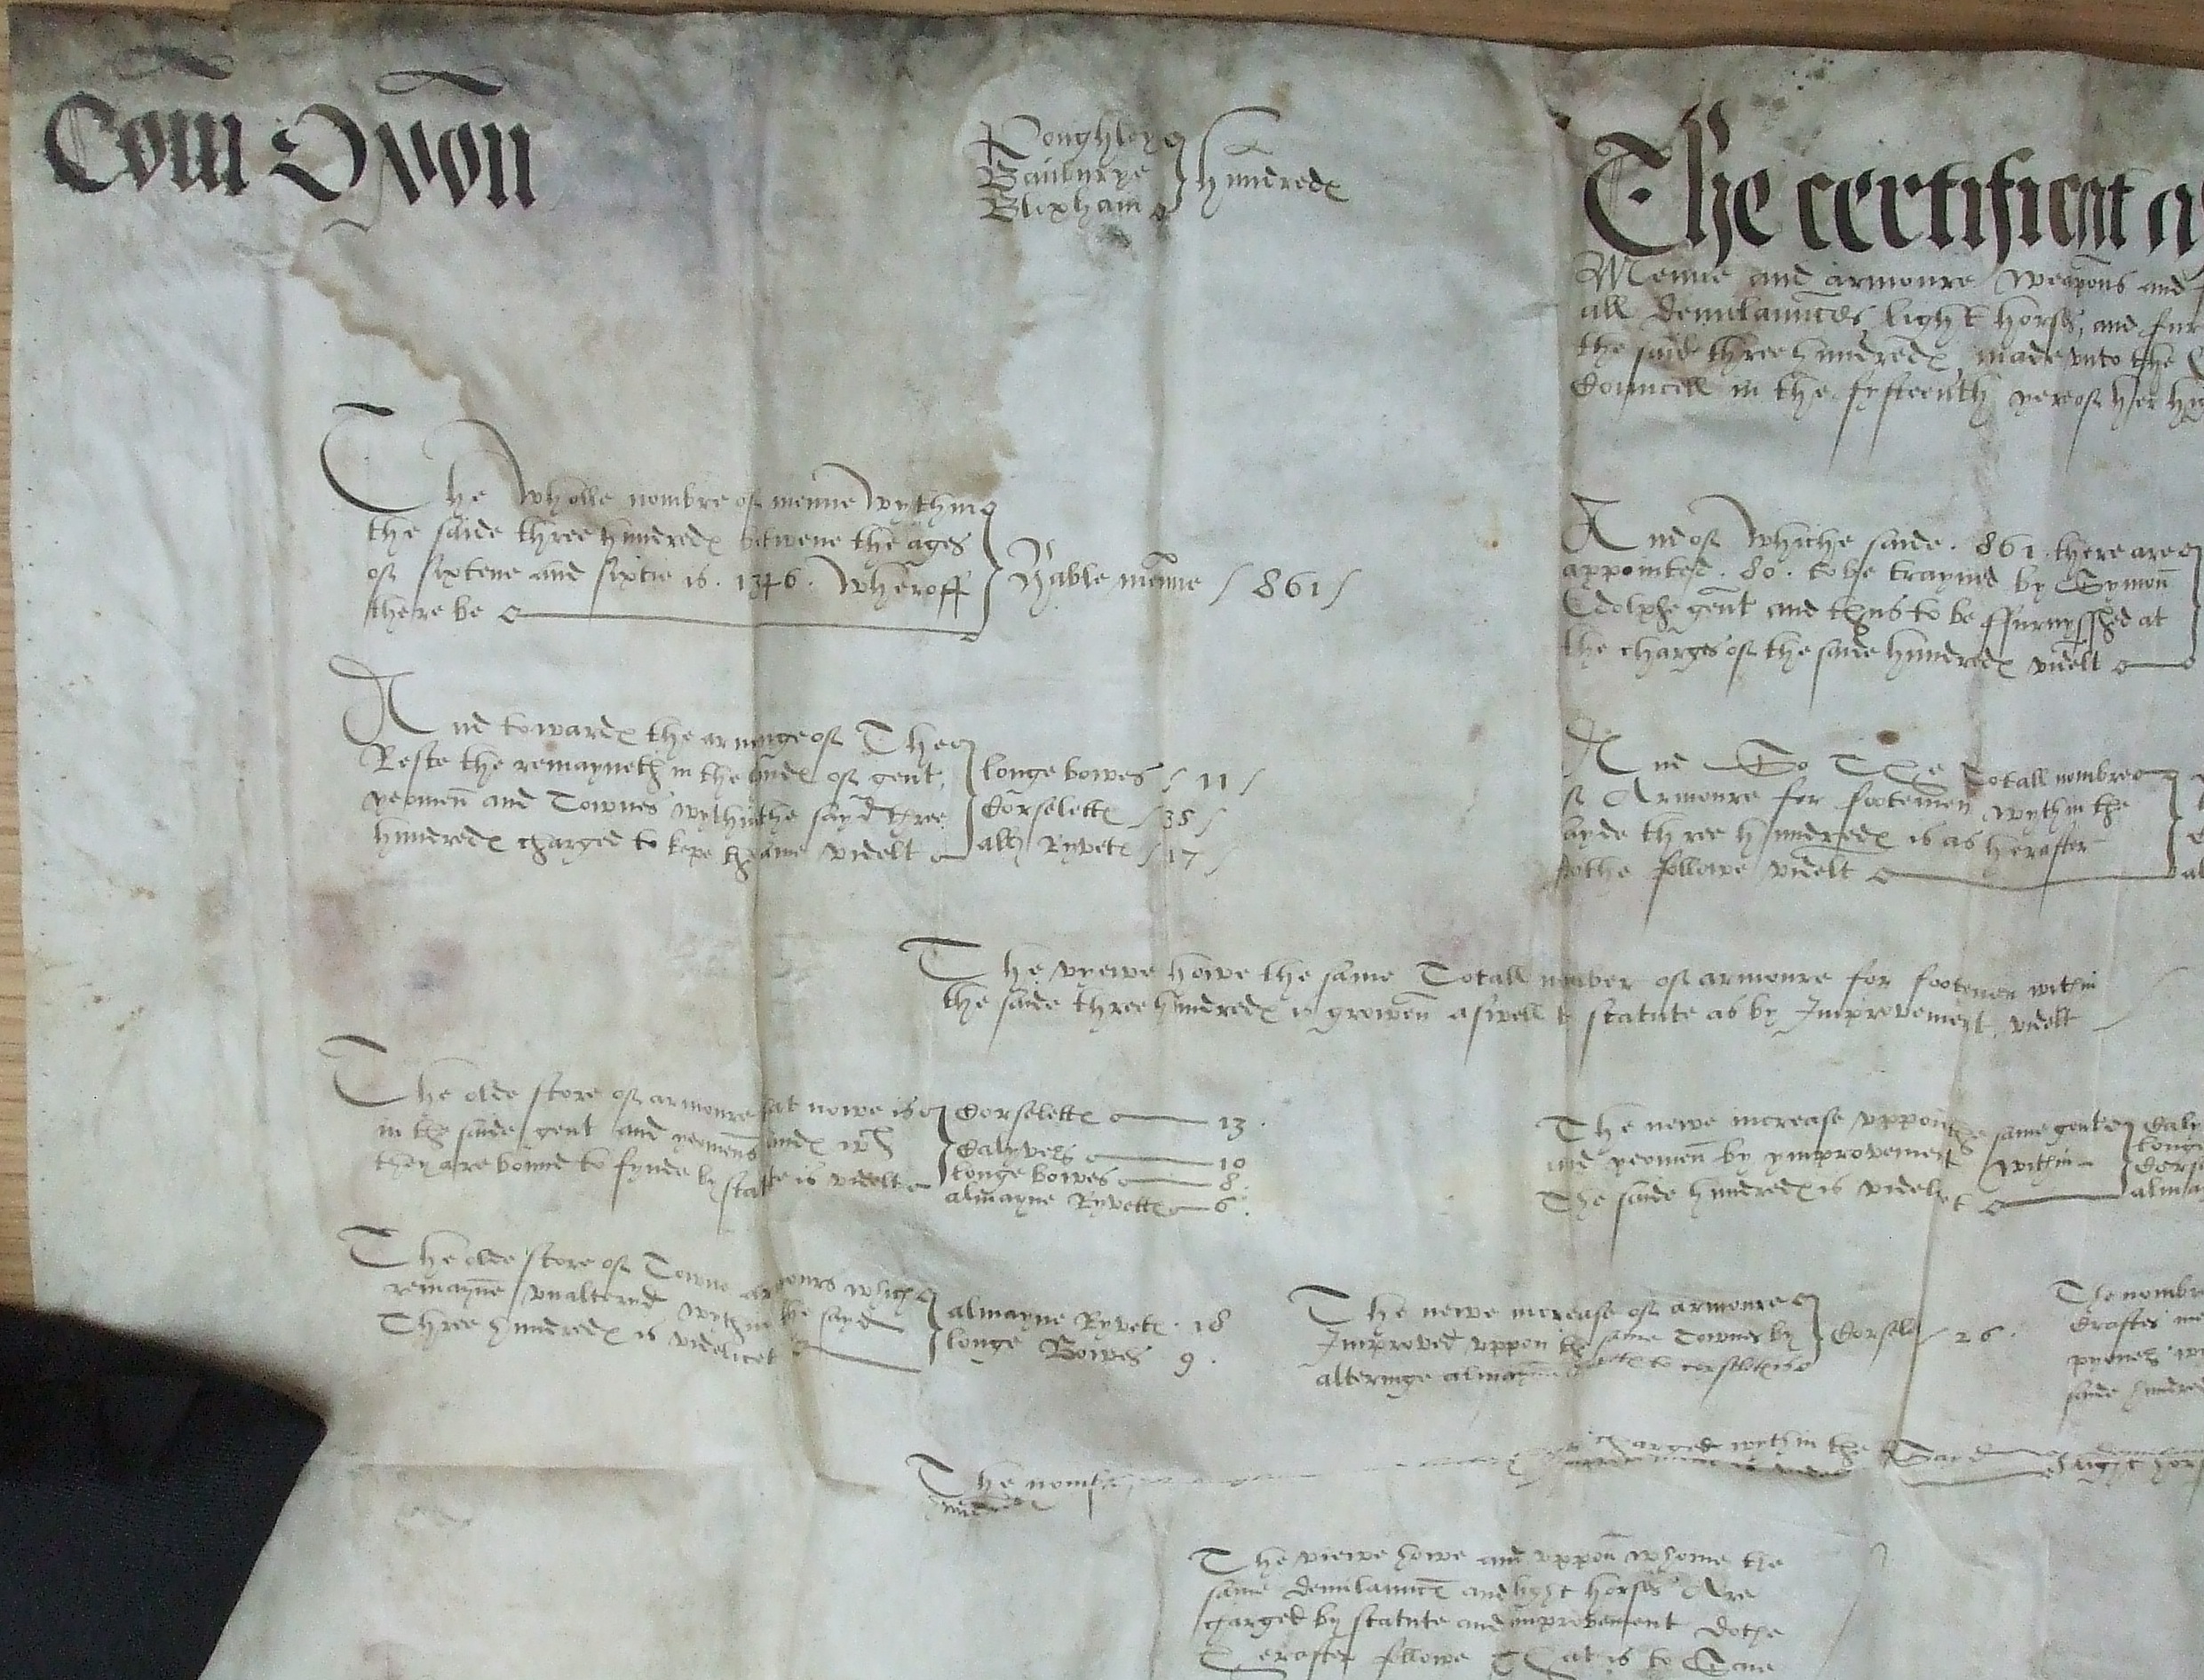 Com Oxon
Poughley
Banburye
Bloxham
hundredes
The certificat
Menne and armoure weapons and
all demilaunces light horses, and fur
the saide three hundredes made unto the
Councell in the fyfteenth yere of her
The wholle nombre of menne wythin
the saide three hundredes betwene the ages
of sixtene and sixtie is . 1346 . wheroff
there be
Hable menne / 861 /
And of whiche saide . 861 . there are
appointed . 80 . to be trayned by Symon
gent and thus to be ffurnysshed at
the charges of the saide hundredes videlt
And towardes the arminge of The
Reste the remayneth in the handes of gent,
yeomen and Townes wythin the sayd three
hundredes charged to kepe the same videlt
longe bowes / 11 /
Corselettes / 38 /
alm Ryvetes / 17 /
And So The Totall nombre
of Armoure for footemen wythin the
sayde three hundredes is as herafter
dothe followe videlt
The vyewe howe the same Totall number of armoure for footemen within
the saide three hundredes is growen aswell by statute as by Improvement, videlt
The olde store of armoure that nowe is
in the saide gent and yeomens handes wch
they are bound to fynde by statute is videlt
Corselettes 13 .
Calyvers 10
longe bowes 8 .
almayne Ryvettes 6 .
The newe increase uppon the same gent
and yeomen by ymprovement within
The saide hundredes is videlet
Caly
longe
Cors
alma
The olde store of Towne armours which
remayne unalterid wythin the sayd
Three hundredes is videlicet
almayne Ryvetes . 18
longe Bowes 9 .
The newe increase of armoure
Improved uppon the same Townes by
alteringe almayne to corselettes is
Corsele / 26 .
The nombre
Craftes me
pyoners w
saide hundred
The nomb charged wythin the Sayd light hors
hundredes
The viewe howe and uppon whome the
same demilaunces and light horses Are
charged by statute and improvement dothe
herafter followe That is to Saie